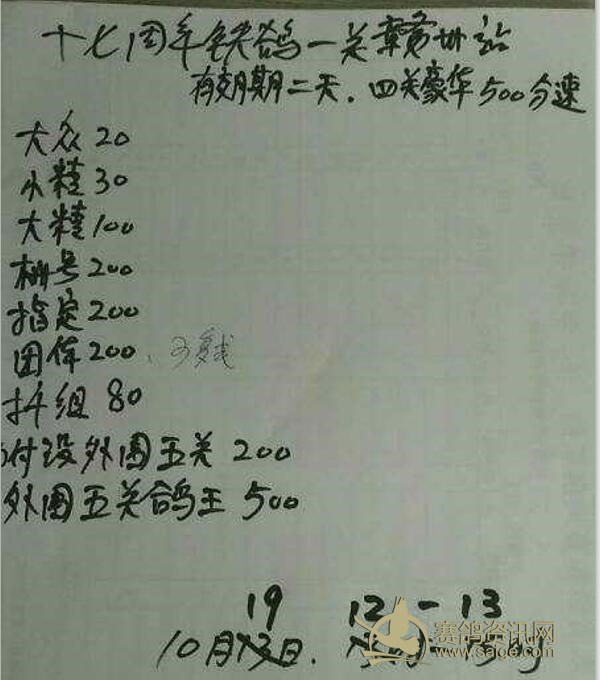 十七周年铁鸽一关赣州站
有效期二天．四关豪华500分速
大众 20
小精 30
大精 100
栅号 200
指定 200
团体 200、可复式
拆组 80
附设外围五关 200
外围五关鸽王 500
19 12-13
10月 日.
赛鸽资讯网
www.saige.com